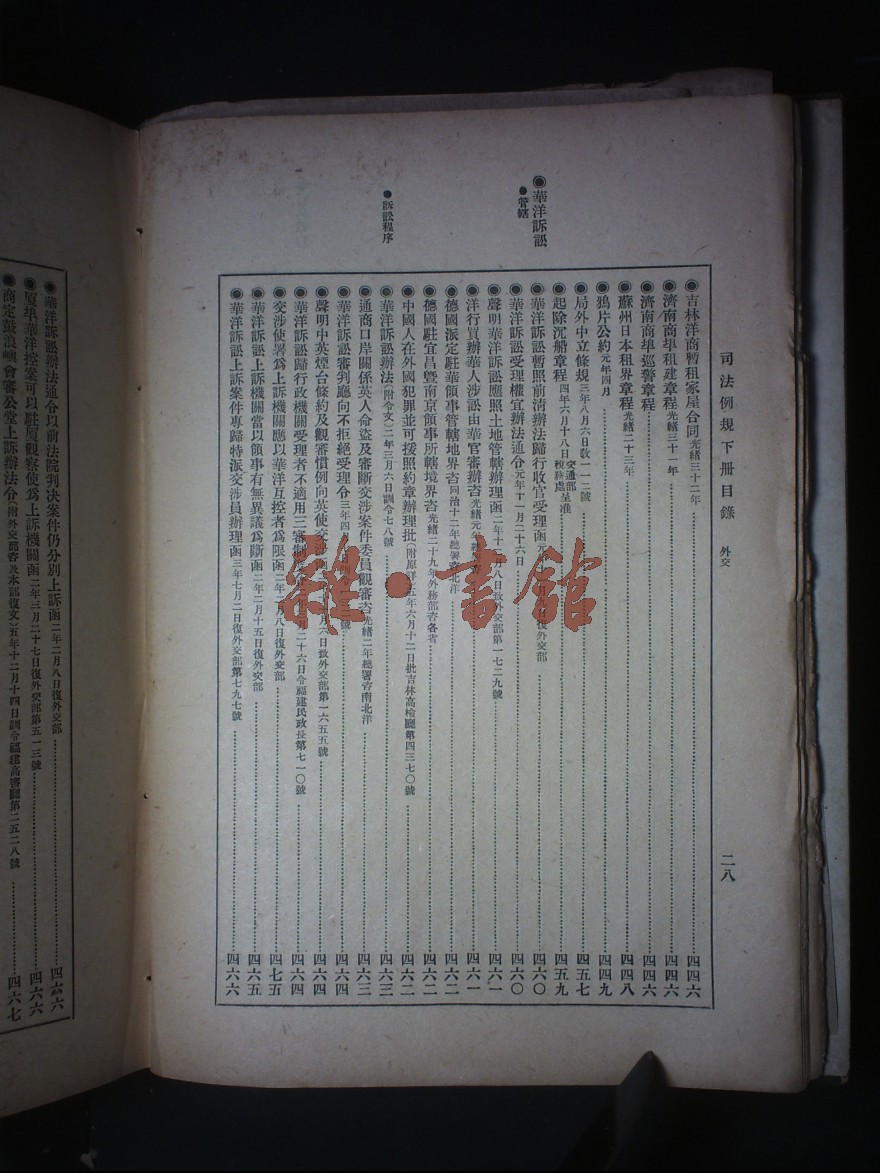 司法例規下冊目錄 外交 二八
◉吉林洋商暫租家屋合同光緒三十二年 四四六
◉濟南商埠租建章程光緒三十一年 四四六
◉濟南商埠巡警章程 四四六
◉蘇州日本租界章程光緒二十三年 四四八
◉鴉片公約元年四月 四四九
◉局外中立條規三年八月六日敎一一二號 四五七
◉起除沉船章程四年六月十八日交通部稅務處呈准 四五九
◉華洋訴訟
●管轄
◉華洋訴訟暫照前清辦法歸行收官受理函 外交部 四六〇
◉華洋訴訟受理權宜辦法通令元年十一月二十六日 四六〇
◉聲明華洋訴訟應照土地管轄辦理函二年十 八日致外交部第一七二九號 四六一
◉洋行買辦華人涉訟由華官審辦咨光緒元年總 四六一
◉德國派定駐華領事管轄地界咨同治十二年總署咨北洋 四六二
◉德國駐宜昌曁南京領事所轄境界咨光緒二十九年外務部咨各省 四六二
◉中國人在外國犯罪並可援照約章辦理批(附原詳)五年六月十二日批吉林高檢廳第四三七〇號 四六二
●訴訟程序
◉華洋訴訟辦法(附令文)二年三月六日訓令七八號 四六三
◉通商口岸關係英人命盜及審斷交涉案件委員觀審咨光緒二年總署咨南北洋 四六三
◉華洋訴訟審判廳向不拒絕受理令三年四 號 四六四
◉聲明中英煙台條約及觀審慣例向英使交涉 六日致外交部第一六五五號 四六四
◉華洋訴訟歸行政機關受理者不適用三審制 月二十六日令福建民政長第七一〇號 四六四
◉交涉使署爲上訴機關應以華洋互控者爲限函二年 八日復外交部 四七五
◉華洋訴訟上訴機關當以領事有無異議爲斷函二年二月十五日復外交部 四六五
◉華洋訴訟上訴案件專歸特派交涉員辦理函三年七月二日復外交部第七九七號 四六六
◉華洋訴訟辦法通令以前法院判决案件仍分別上訴函二年二月八日復外交部 四六六
◉厦埠華洋控案可以駐厦觀察使爲上訴機關函二年三月二十七日復外交部第五一三號 四六六
◉商定鼓浪嶼會審公堂上訴辦法令(附外交部咨及本部復文)五年十二月十四日訓令福建高審廳第二五二八號 四六七
書館